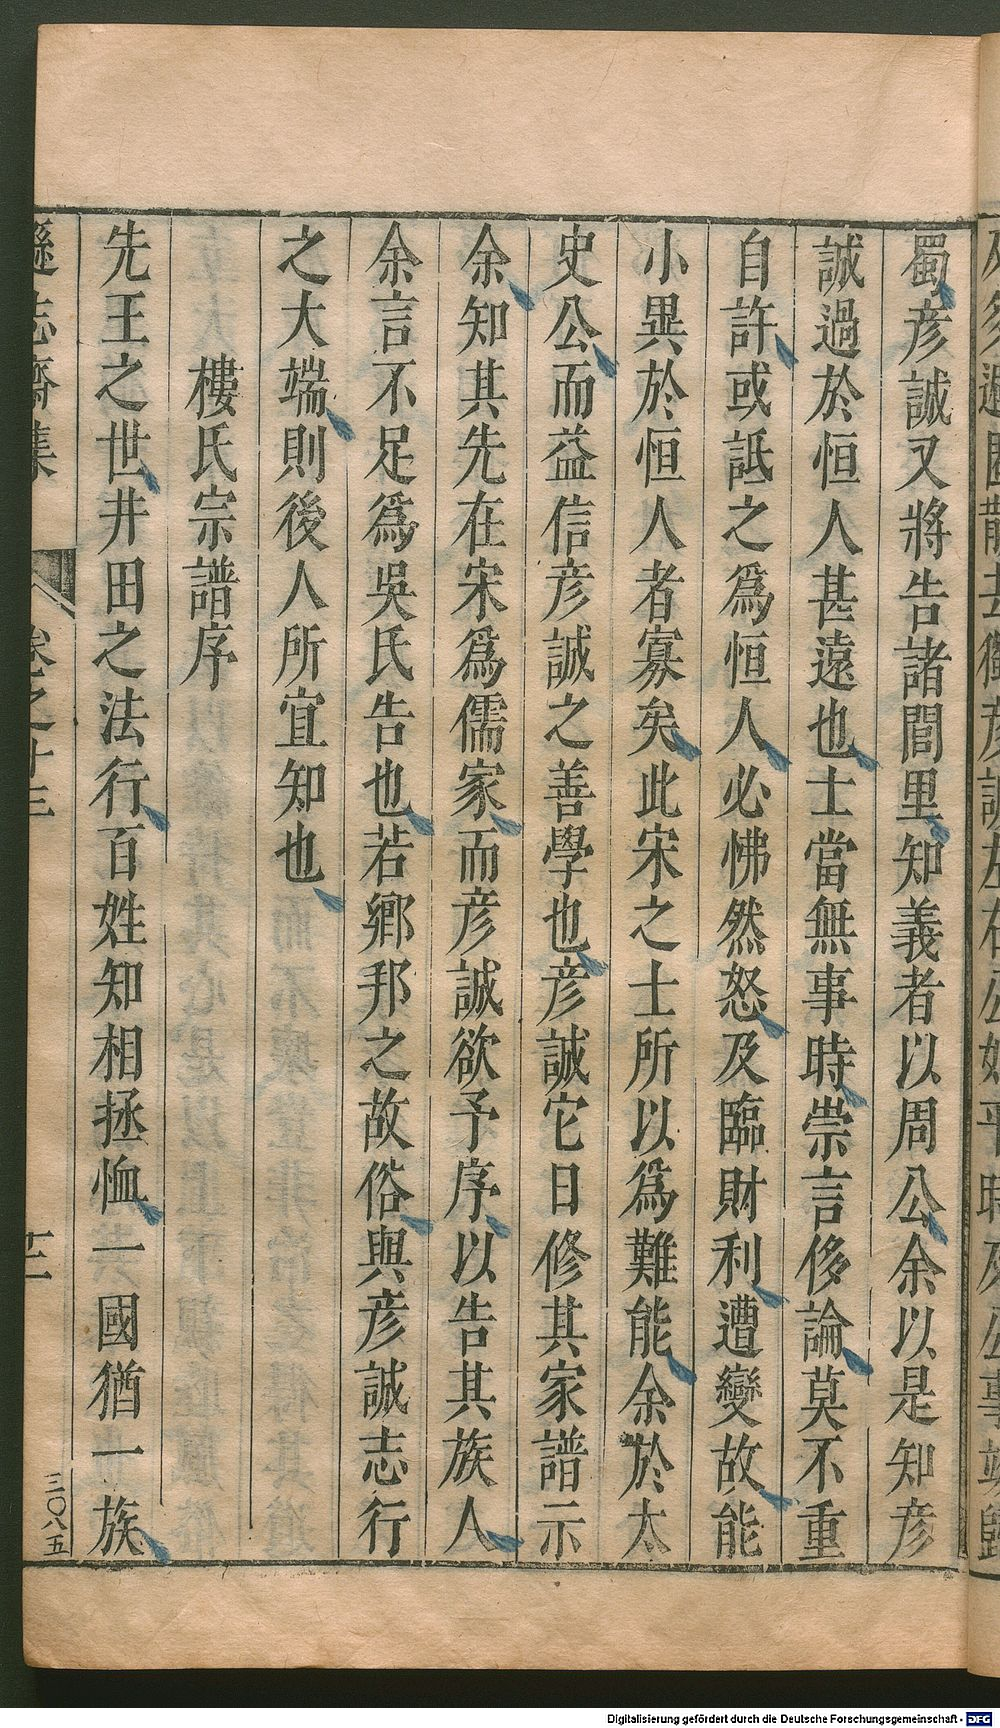 蜀彦誠又將告諸閭里知義者以周公余以是知彦
誠過於恒人甚遠也士當無事時崇言侈論莫不重
自許或詆之爲恒人必怫然怒及臨財利遭變故能
小異於恒人者寡矣此宋之士所以爲難能余於太
史公而益信彦誠之善學也彦誠它日修其家譜示
余知其先在宋爲儒家而彦誠欲予序以告其族人
余言不足爲吳氏告也若鄉邦之故俗與彦誠志行
之大端則後人所宜知也
樓氏宗譜序
先王之世井田之法行百姓知相拯恤一國猶一族
遜志齋集
卷之十三
三〇八五
Digitalisierung gefördert durch die Deutsche Forschungsgemeinschaft - DFG